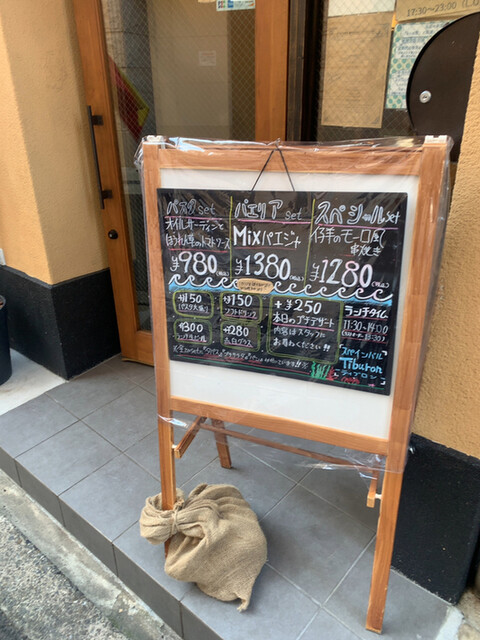 17:30〜23:00 (L.O
パスタset
オイルサーディンと
ほうれん草のトマトソース
¥980(税込)
パエリアset
Mixパエジャ
¥1380(税込)
スペシャルset
仔羊のモーロ風
串焼き
¥1280(税込)
+¥150
パスタ大盛り
+¥150
ソフトドリンク
+¥300
ランチビール
+¥280
赤白グラス
+¥250
本日のプチデザート
内容はスタッフに
お尋ねください!!
ランチタイム
11:30-14:00
スペインバル
Tiburon
ティブロン